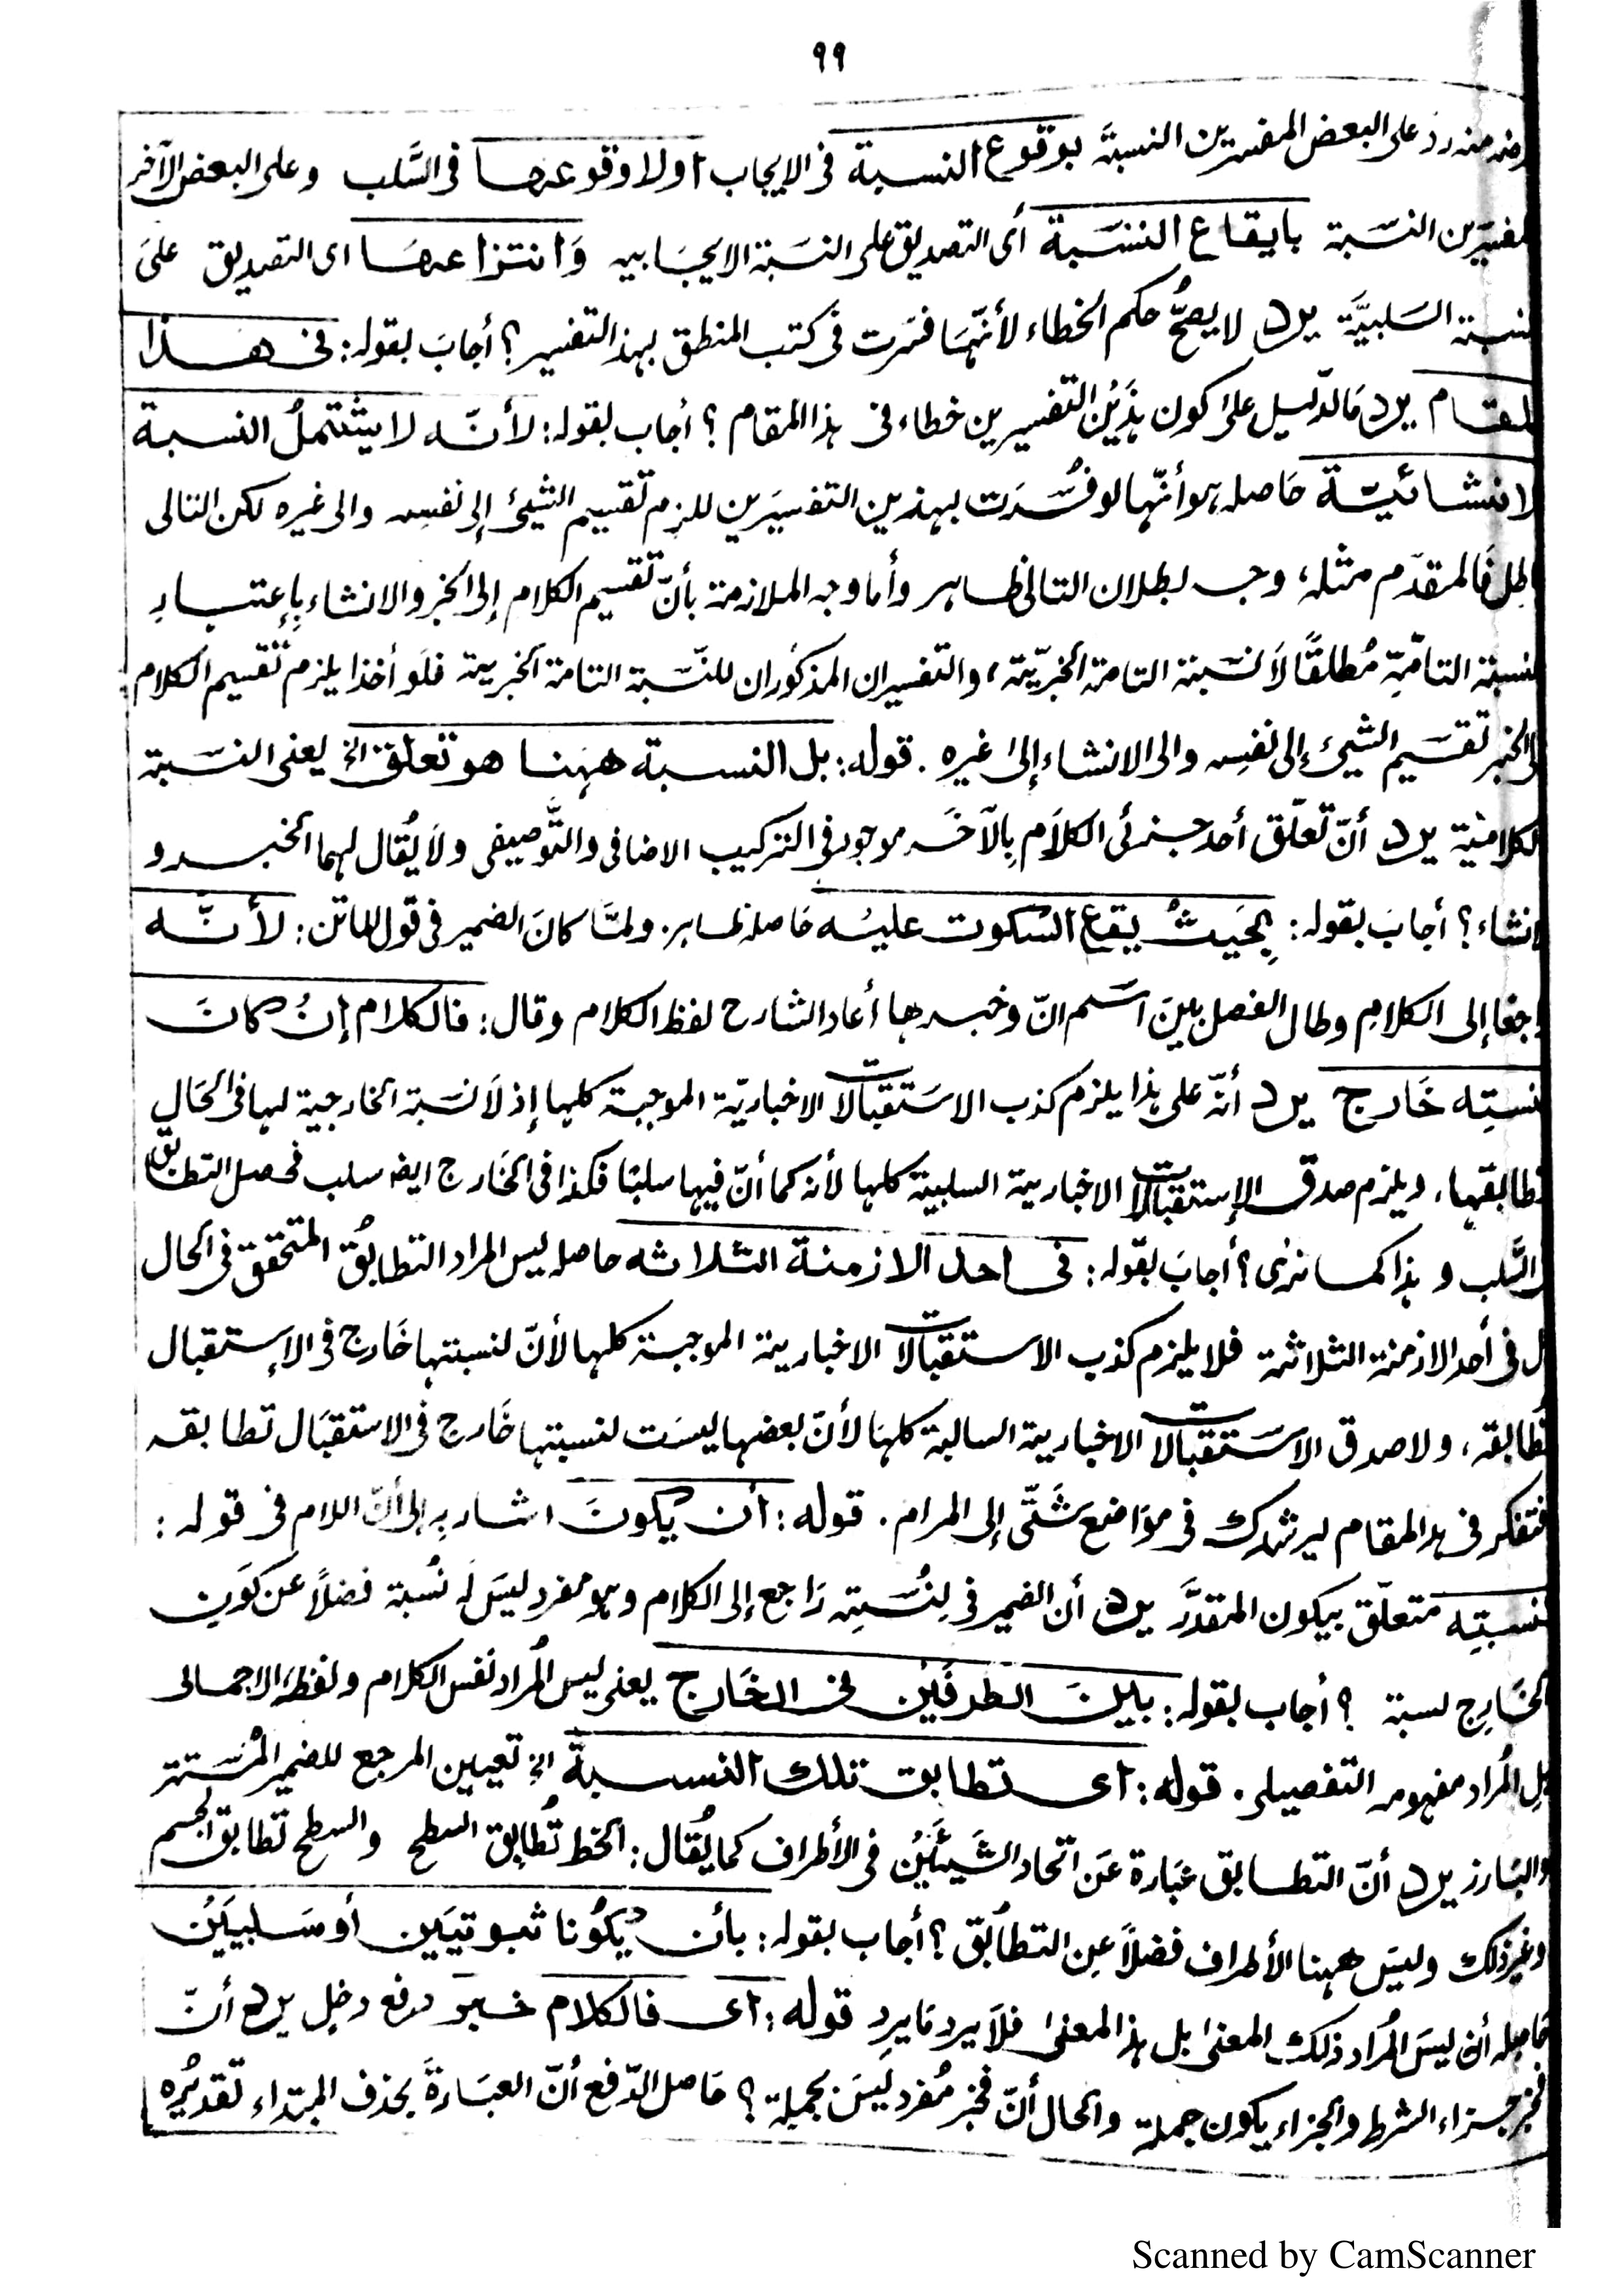 ٩٩
رد على البعض المفسرين النسبة بوقوع النسبة فى الايجاب اولا وقوعها فى السَّلب وعلى البعض الآخر
النسبة بايقاع النسبة أى التصديق على النسبة الايجابيه وَانتزاعها اى التصديق علىَ
السَلبيَّة يرد لا يصحُّ حكم الخطاء لأنّهَا فسّرت فى كتب المنطق بهذ التفسير؟ أجابَ بقوله: فى هذا
يرد مَا لدّليل على كون هٰذَيْن التفسيرين خطاء فى هذا المقام؟ أجاب بقوله: لأنّه لا يشتملُ النسبة
حَاصله هو أنّها لو فُسِّرَت بهذين التفسيرَين للزم تقسيم الشيئ إلى نفسِه والى غيره لكن التالى
فَالمقدّم مثله، وجه بطلان التالى ظاهر وأما وجه الملازمة بأنّ تقسيم الكلام إلى الخبر والانشاء بِإعتبارِ
التامّةِ مُطلقًا لاَ نسَبة التامة الخبريّة، والتفسيران المذكوران للنّسَبة التامة الخبرية فلَو أخذا يلزم تقسيم الكلام
تقسَيم الشيئ إلى نفسِه والى الانشاء إلىٰ غيره. قوله: بل النسبة ههنا هو تعلق الخ يعنى النسَبة
يرد أنّ تعلّق أحد جزئى الكلاَم بِالآخَر موجود فى التركيب الاضافى والتَّوصيفى ولاَ يُقال لهما الخبر و
؟ أجابَ بقوله: بِحَيثُ يقع السكوت عليه حَاصله ظاهر. ولمَّا كانَ الضمير فى قول الماتن: لأنَّه
إلى الكلامِ وطال الفصل بينَ اسَم انّ وخبرها أعاد الشارح لفظ الكلام وقال: فالكلام إنْ كانَ
خَارج يرد أنّه على هذا يلزم كذب الاسَتقبالات الاخباريّة الموجبة كلها إذ لاَ نسَبة الخارجية لها فى الحَال
ويلزم صدق الإستقبالات الاخبارية السلبية كلها لأنه كما أنّ فيها سلبًا فكذا فى الخَارج ايضا سلب فحصل التطابق
و هذا كما نرٰى؟ أجابَ بقوله: فى احد الازمنة الثلاثه حاصله ليس المراد التطابُق المتحقق فى الحال
فى أحد الازمنة الثلاثة فلا يلزم كذب الاستقبالات الاخبارية الموجبة كلها لأنّ لنسبتها خَارج فى الإستقبال
تُطابقه، ولا صدق الاسَتقبالات الاخبارية السالبة كلهَا لأنّ بعضها ليسَت لنسبتها خَارج فى الاستقبَال تطابقه
فتفكر فى هذا المقام ليرشدك فى موَاضع شَتّى إلى المرام. قوله: أن يّكونَ اشار بِه إلى أنّ اللام فى قوله:
متعلّق بيكون المقدَّر يرد أن الضمير فى لِنُسَبتِه رَاجع إلى الكلام وهو مفرد ليسَ لَه نُسبة فضلاً عن كَونِ
الخَارِج لسبة ؟ أجاب بقوله: بينَ الطرفَيْن فى الخَارج يعنى ليس المُراد نفس الكلام ولفظه الاجمالى
بل المُراد مفهومه التفصيلى. قوله: اى تطابق تلك النسبة الخ تعيين المرجع للضمير المُسَتتر
والبَارز يرد أنّ التطابق عبَارة عَن اتحاد الشَيئَيْن فى الأطراف كما يُقال: الخط تُطابق السطح والسطح تطابق الجسم
وغير ذلك وليسَ ههنا الأطراف فضلاً عن التطابُق؟ أجاب بقوله: بأن يّكُونا ثبوتيَين أو سَلبيَيْن
حَاصله أن ليسَ المُراد ذلك المعنىٰ بل هذ المعنىٰ فلاَ يرد مَا يرد قوله: اى فالكلام خبر دفع دخلِ يرد أنّ
جزاء الشرط والجزاء يكون جملة والحال أنّ فخبر مُفرد ليسَ بجملة؟ حَاصل الدّفع أنّ العبَارةَ بحذف المبتداء تقديُره
Scanned by CamScanner